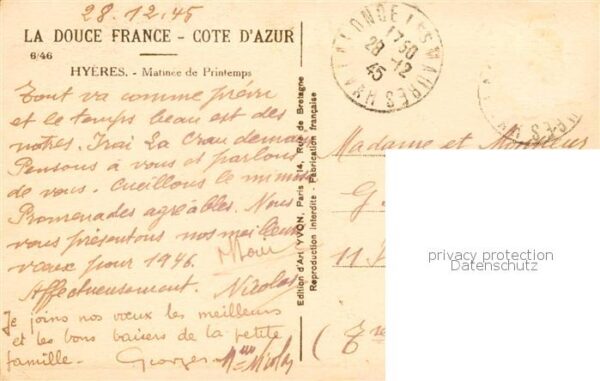 28.12.45
LA DOUCE FRANCE - COTE D'AZUR
6/46
HYÈRES. - Matinée de Printemps
Tout va comme prévu
et le temps beau est des
notres. Irai La Crau demain
Pensons à vous et parlons
de vous. Cueillons le mimosa
Promenades agréables. Nous
vous présentons nos meilleurs
vœux pour 1946.
Affectueusement. Nicolas
Je joins nos vœux les meilleurs
et les bons baisers de la petite
famille. Georges Nicolas
Edition d'Art YVON, Paris - 14, Rue de Bretagne
Reproduction interdite - Fabrication française
LA LONDE LES MAURES VAR
1750
28-12
45
Madame et Monsieur
G.
11
privacy protection
Datenschutz